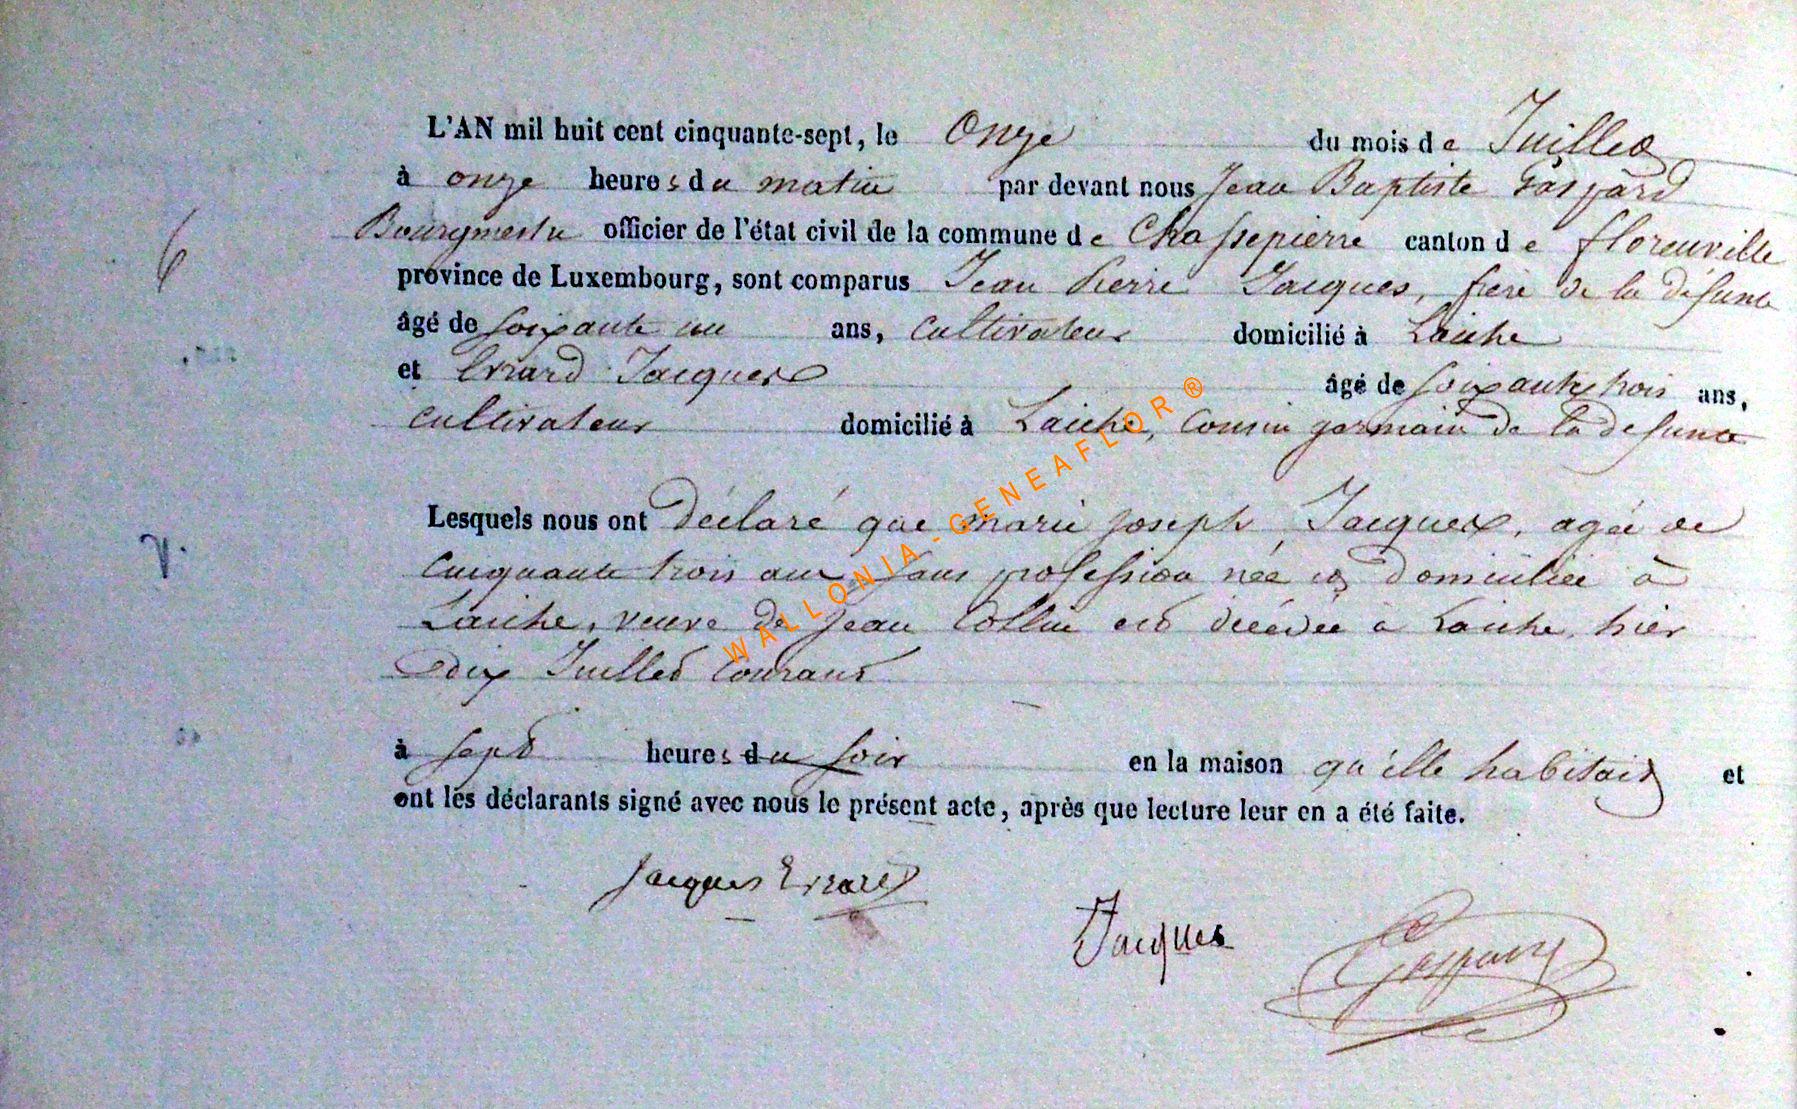 L'AN mil huit cent cinquante-sept, le Onze du mois de Juillet
à onze heures du matin par devant nous Jean Baptiste Gaspard
Bourgmestre officier de l'état civil de la commune de Chassepierre canton de florenville
province de Luxembourg, sont comparus Jean Pierre Jacques, frère de la défunte
6
âgé de soixante un ans, cultivateur domicilié à Laiche
et Errard Jacques âgé de soixante trois ans,
cultivateur domicilié à Laiche, cousin germain de la défunte
Lesquels nous ont déclaré que marie joseph Jacques, agée de
cinquante trois ans, sans profession née et domiciliée à
Laiche, veuve de jean Collin est décédée à Laiche, hier
dix Juillet Courant
à sept heures du soir en la maison qu'elle habitait et
ont les déclarants signé avec nous le présent acte, après que lecture leur en a été faite.
Jacques Errard
Jacques
Gaspard
WALLONIA-GENEAFLOR ®